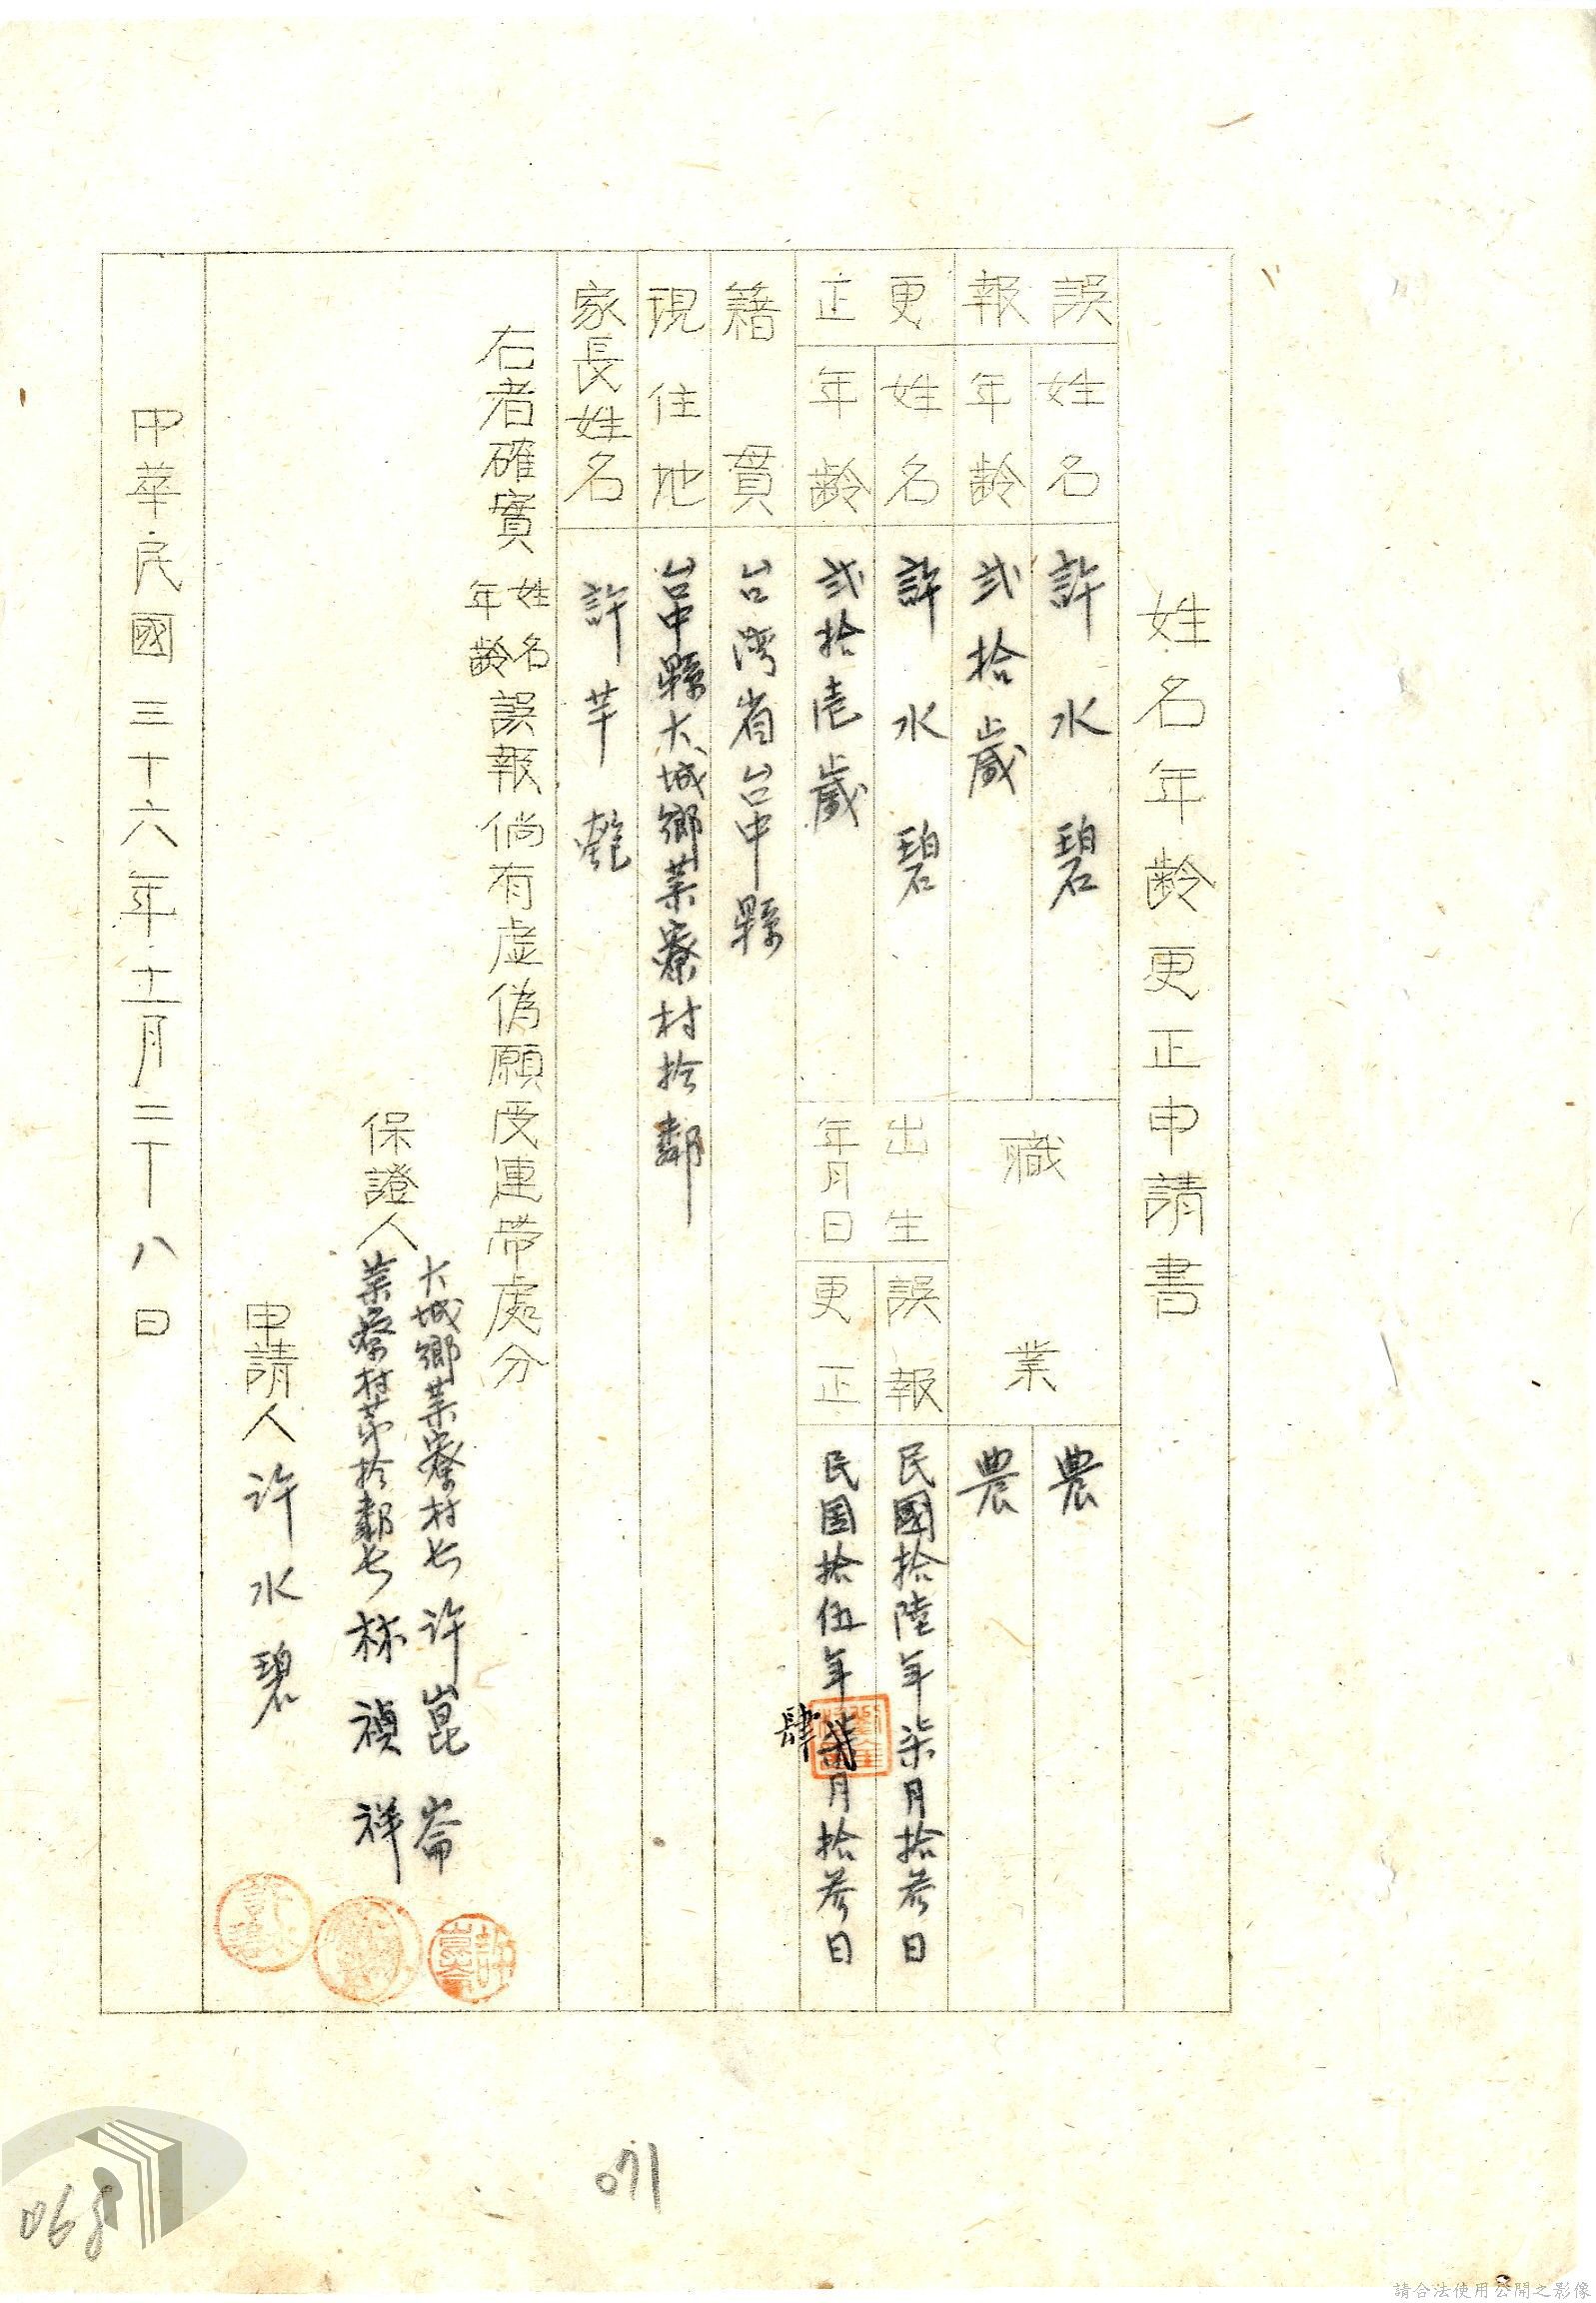 姓名年齡更正申請書
誤報
姓名
許水碧
年齡
弍拾歲
職業
農
農
更正
姓名
許水碧
年齡
弍拾壱歲
出生年月日
誤報
民國拾陸年柒月拾叁日
更正
民国拾伍年柒月拾叁日
肆
籍貫
台湾省台中縣
現住地
台中縣大城鄉菜寮村拾鄰
家長姓名
許芉
右者確實姓名年齡誤報倘有虛偽願受連帶處分
保證人
大城鄉菜寮村长許崑崙
菜寮村第拾鄰长林禎祥
申請人許水碧
中華民國三十六年十二月二十八日
071
068
請合法使用公開之影像